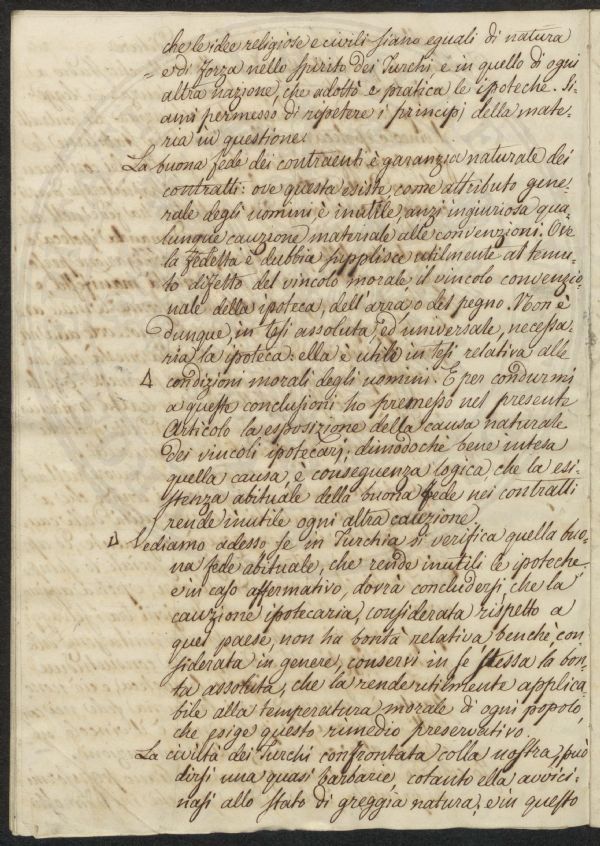 che le idee religiose e civili siano eguali di natura
e di forza nello spirito dei Turchi, e in quello di ogni
altra nazione, che adottò e pratica le ipoteche. Si-
ami permesso di ripetere i principj della mate-
ria in questione.
La buona fede dei contraenti è garanzia naturale dei
contratti: ove questa esiste, come attributo gene-
rale degli uomini, è inutile, anzi ingiuriosa qua-
lunque cauzione materiale alle convenzioni. Ove
la fedeltà è dubbia supplisce utilmente al temu-
to difetto del vincolo morale il vincolo convenzio-
nale della ipoteca, dell'arra o del pegno. Non è
dunque, in tesi assoluta, ed universale, necessa-
ria la ipoteca: ella è utile in tesi relativa alle
condizioni morali degli uomini. E per condurmi
a queste conclusioni ho premesso nel presente
Articolo la esposizione della causa naturale
dei vincoli ipotecarj; dimodochè bene intesa
quella causa, è conseguenza logica, che la esi-
stenza abituale della buona fede nei contratti
rende inutile ogni altra cauzione.
Vediamo adesso se in Turchia si verifica quella buo-
na fede abituale, che rende inutili le ipoteche
e in caso affermativo, dovrà concludersi, che la
cauzione ipotecaria, considerata rispetto a
quel paese, non ha bontà relativa, benchè con-
siderata in genere, conservi in se stessa la bon-
tà assoluta, che la rende utilmente applica-
bile alla temperatura morale di ogni popolo,
che esige questo rimedio preservativo.
La civiltà dei Turchi confrontata colla nostra, può
dirsi una quasi barbarie cotanto ella avvici-
nasi allo stato di greggia natura; e in questo